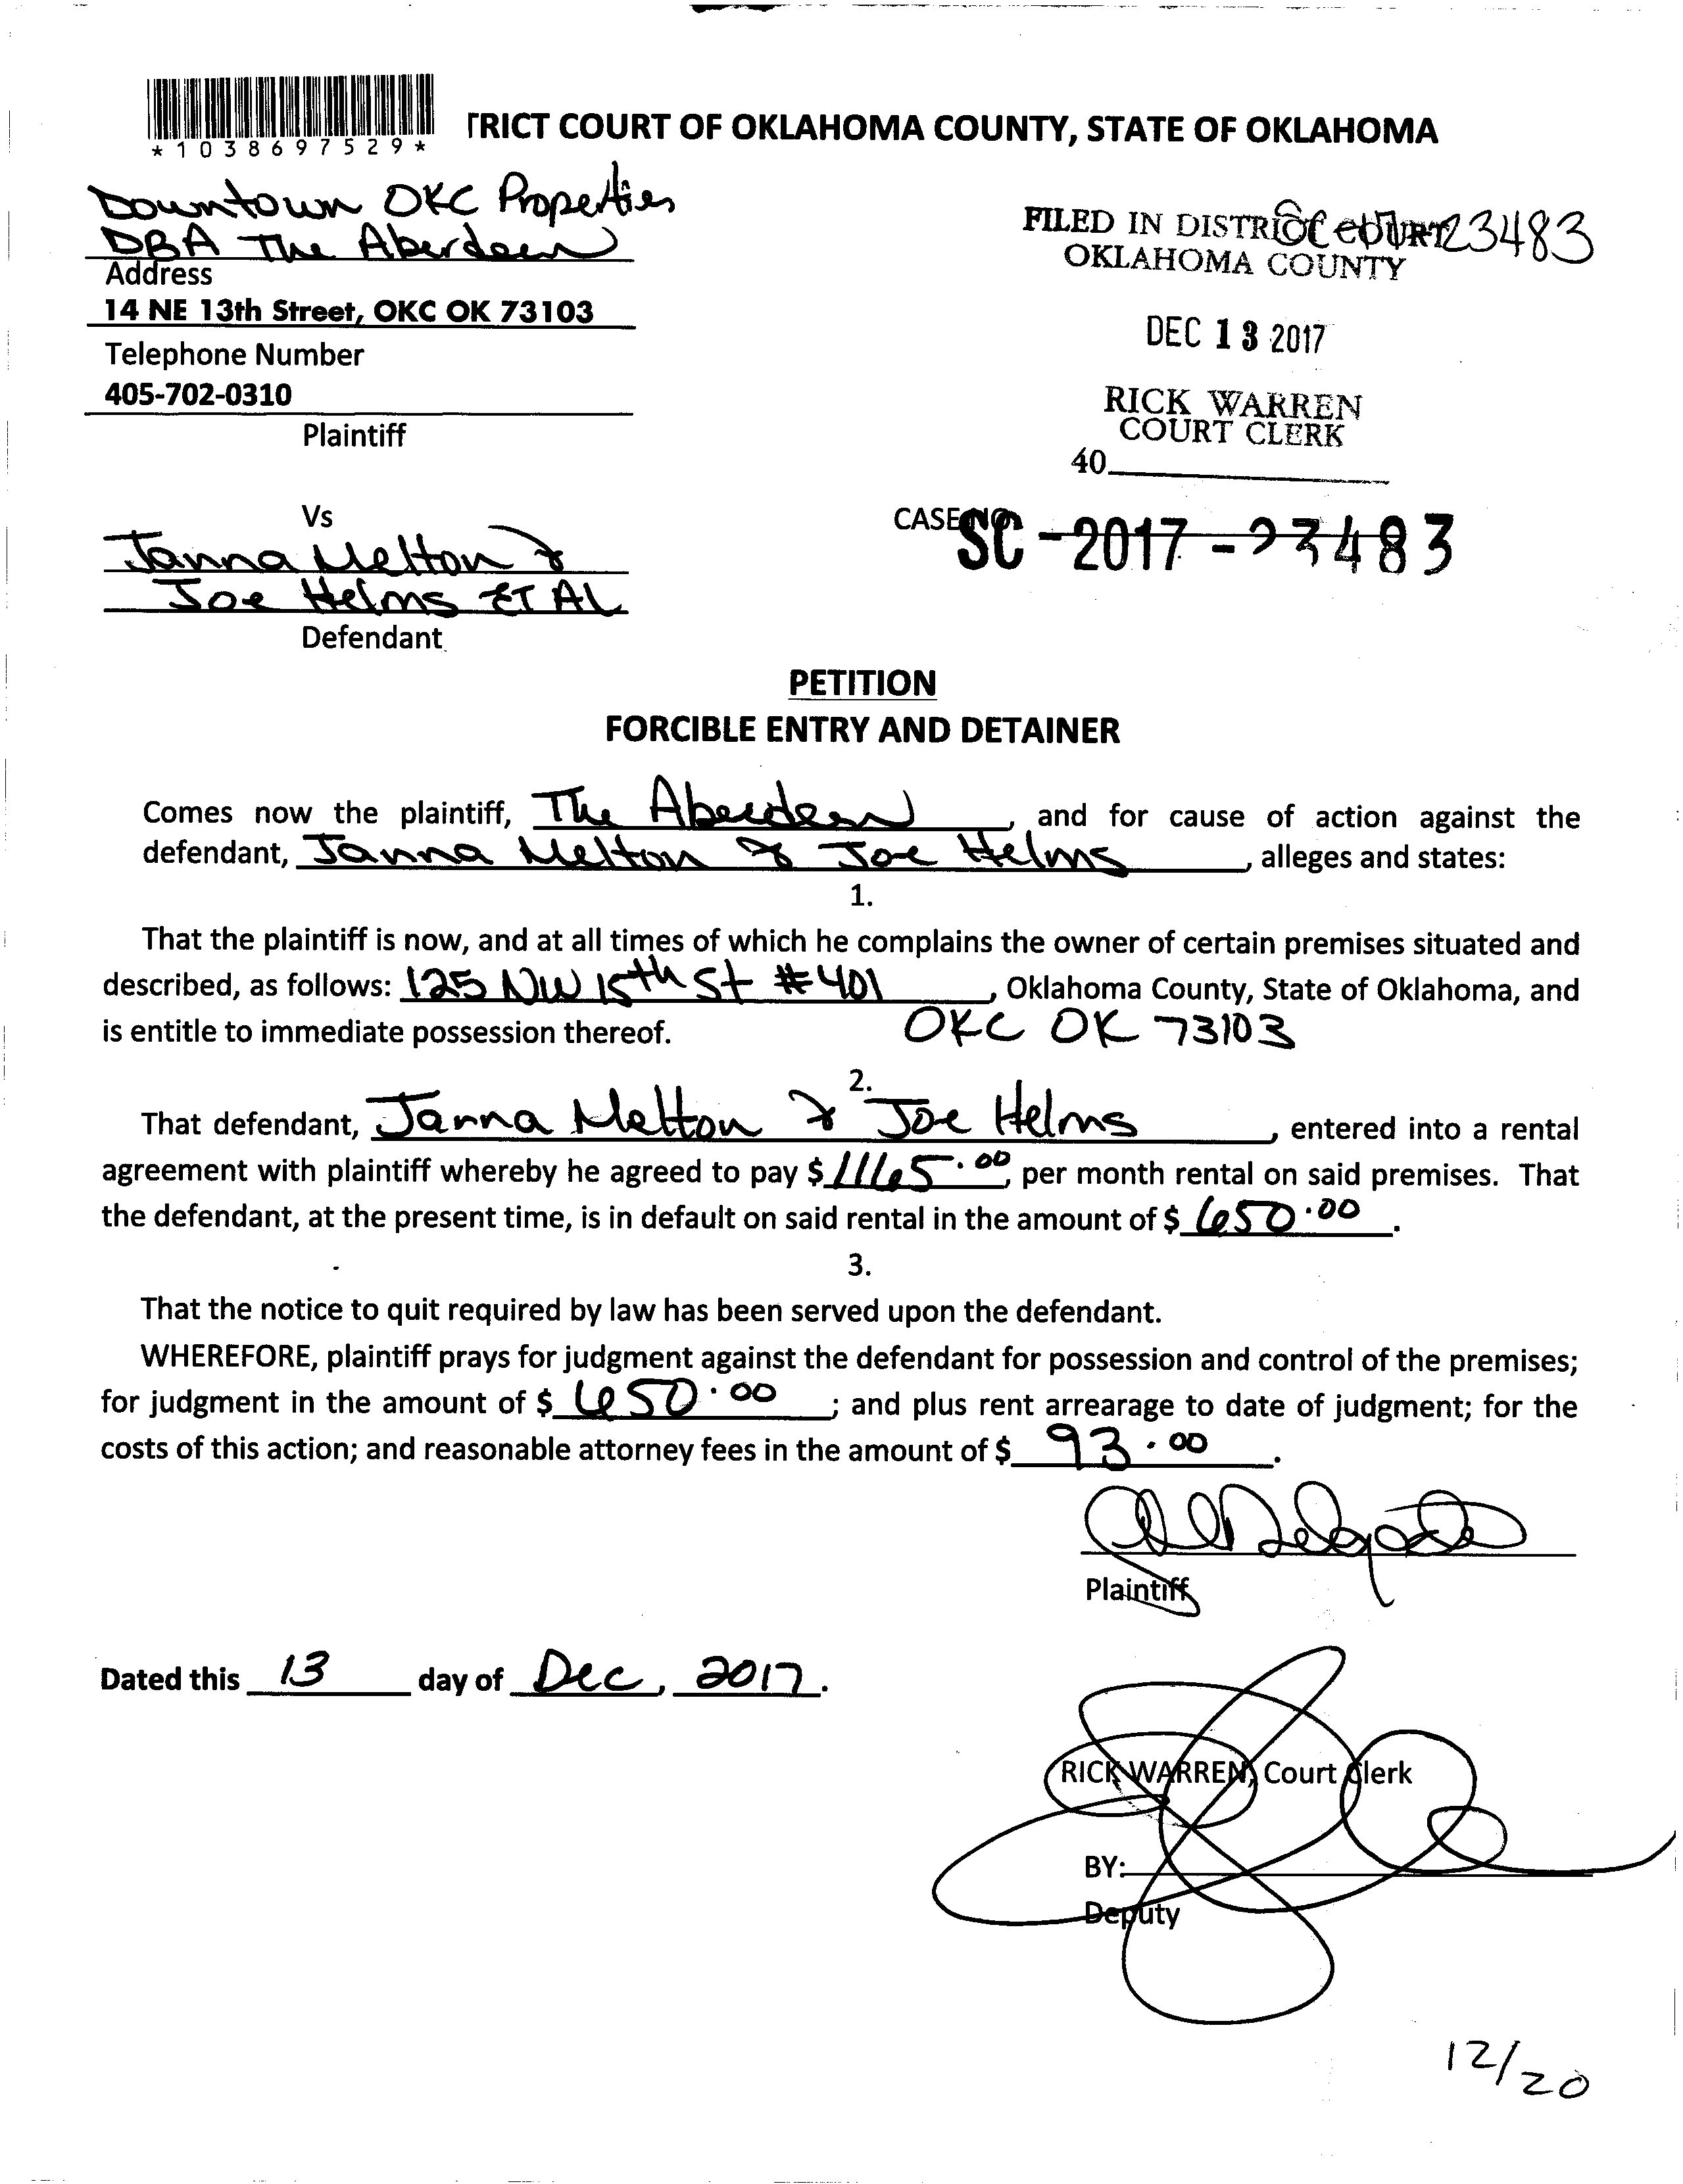 *1038697529*
TRICT COURT OF OKLAHOMA COUNTY, STATE OF OKLAHOMA
Downtown OKC Properties
DBA The Aberdeen
Address
14 NE 13th Street, OKC OK 73103
Telephone Number
405-702-0310
Plaintiff
FILED IN DISTRICT COURT
23483
OKLAHOMA COUNTY
DEC 13 2017
RICK WARREN
COURT CLERK
40
Vs
Janna Melton &
Joe Helms ET AL
Defendant
CASE NO.
SC-2017-23483
PETITION
FORCIBLE ENTRY AND DETAINER
Comes now the plaintiff, The Aberdeen, and for cause of action against the
defendant, Janna Melton & Joe Helms, alleges and states:
1.
That the plaintiff is now, and at all times of which he complains the owner of certain premises situated and
described, as follows: 125 NW 15th St #401, Oklahoma County, State of Oklahoma, and
is entitle to immediate possession thereof. OKC OK 73103
2.
That defendant, Janna Melton & Joe Helms, entered into a rental
agreement with plaintiff whereby he agreed to pay $1165.00, per month rental on said premises. That
the defendant, at the present time, is in default on said rental in the amount of $650.00.
3.
That the notice to quit required by law has been served upon the defendant.
WHEREFORE, plaintiff prays for judgment against the defendant for possession and control of the premises;
for judgment in the amount of $650.00; and plus rent arrearage to date of judgment; for the
costs of this action; and reasonable attorney fees in the amount of $93.00.
Plaintiff
Dated this 13 day of Dec, 2017.
RICK WARREN, Court Clerk
BY:
Deputy
12/20